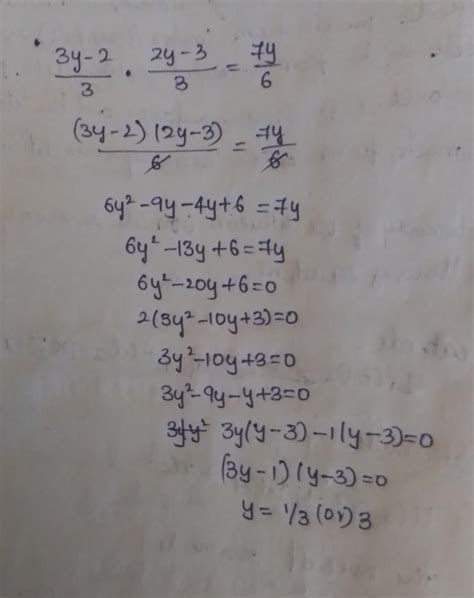 (3y-2)/3 · (2y-3)/3 = 7y/6
(3y-2)(2y-3)/6 = 7y/6
6y² -9y -4y+6 = 7y
6y² -13y +6 = 7y
6y² -20y +6 = 0
2(3y² -10y +3) = 0
3y² -10y +3 = 0
3y² -9y -y +3 = 0
3y(y-3) -1(y-3) = 0
(3y-1)(y-3) = 0
y = 1/3 (or) 3